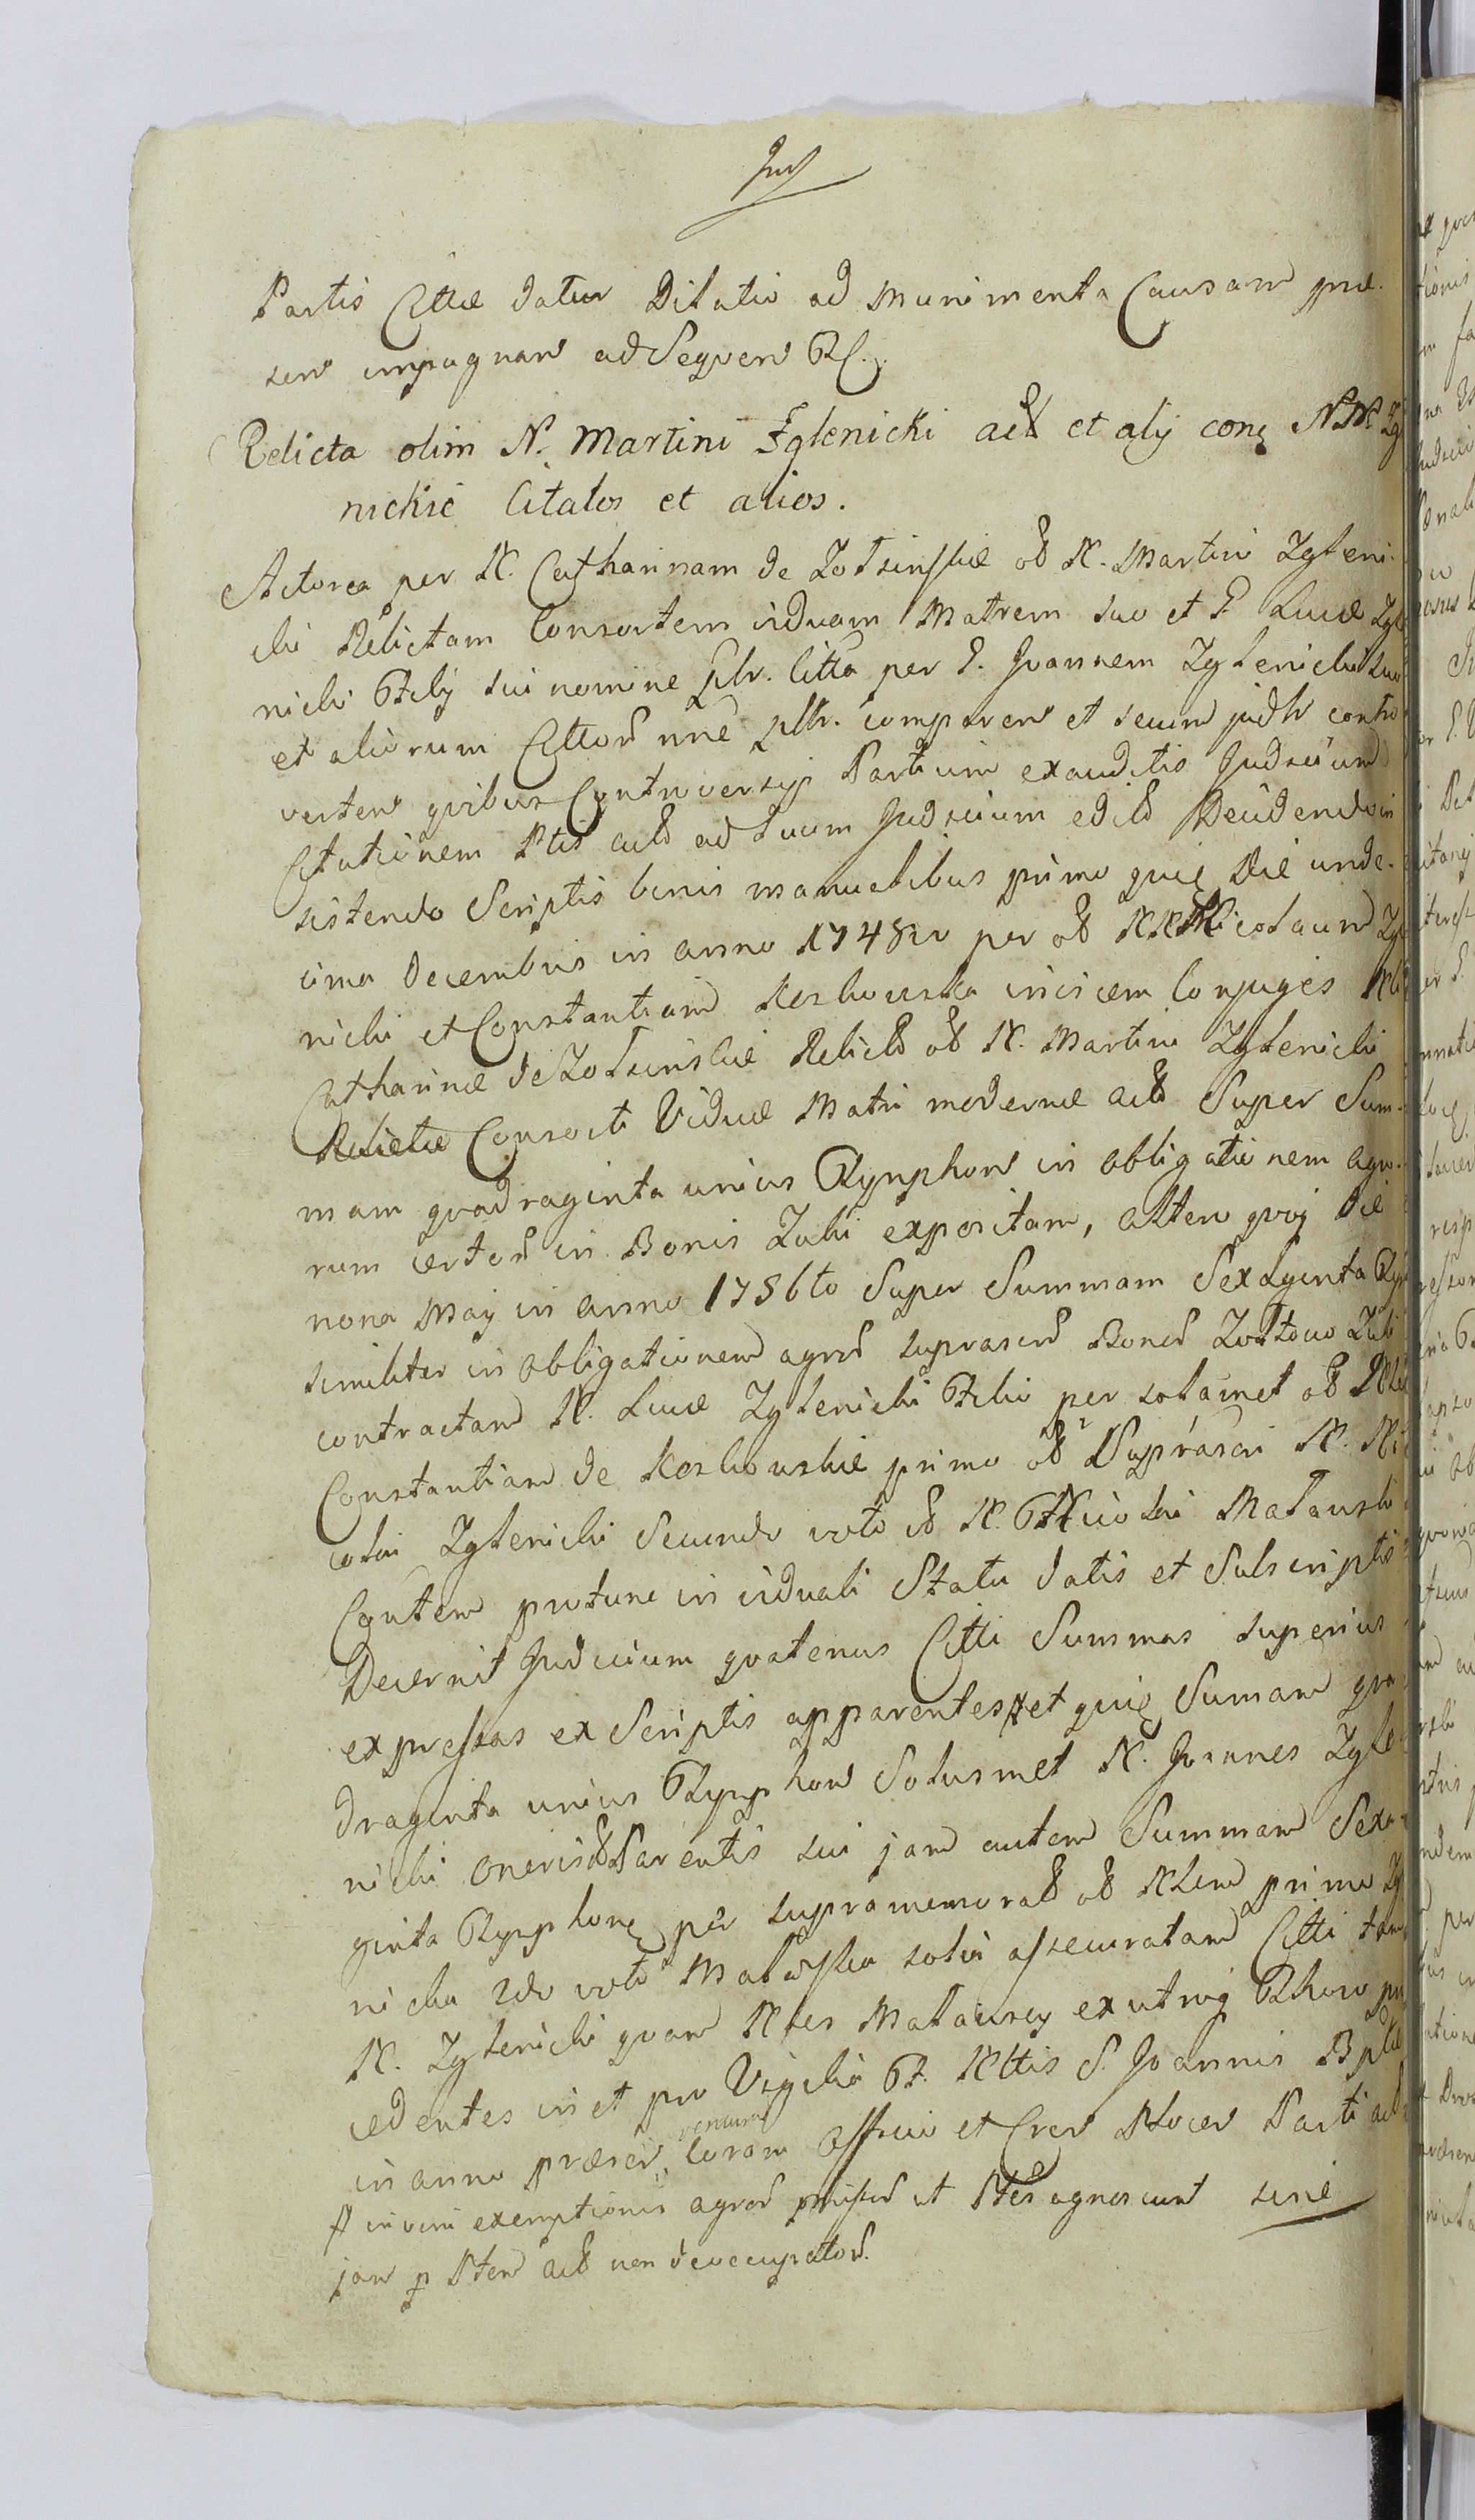 Partis Cttae datur Dilatio ad munimenta Causam prae-
sen impugnan ad Sequen
Relicta olim N. Martini Zglenicki act et alij conq NN Zg
nickie Citatos et alios.
Actorea per N. Catharinam de Zolsinskie ob N. Martini Zgleni-
cki Relictam Consortem viduam Matrem suo et G. Lucae Zgle
nicki Filij sui nomine pltr. citta per G. Joannem Zglenicki suo
et aliorum Cttor nne pltr. comparen et secum judtr contro
verten quibus Controversijs Partium exauditis Judicium
Citationem Ptis act ad suum Judicium edict Decidendo in
sistendo Scriptis binis manualibus primo quiq Die unde-
cima Decembris in anno 1748vo per ob NN Nicolaum Zgl
nicki et Constantiam Koskowska invicem Conjuges Nli
Catharinae de Zolsinskie Relict ob N. Martini Zglenicki
Relictae Consorti Viduae Matri modernae act Super Sum-
mam quadraginta unius Rynphon in obligationem agro-
rum certor in Bonis Zalii expositam, altero quoq Die
nona Maij in anno 1756to Super Summam Sexaginta Ryn
similiter in obligationem agror suprascr Bonor
contractam N. Lucae Zglenicki Filio per solamet ob Nlem
Constantiam de Koskowskie primo ob Suprascri N. Ni
colai Zglenicki Secundo voto ob N. Nicolai Malawski
Contem protunc in viduali Statu datis et Subscriptis
Decernit Judicium quatenus Citti Summas superius
expressas ex Scriptis apparentes # et quiq Sumam qua
draginta unius Rynphon Solusmet N. Joannes Zgle
nicki oneris ob Parentis sui jam autem Summam Sexa-
ginta Rynphonq per supramemorat ob Nlem primo Zg
nicka 2do voto Malawska solvi assecuratam Citti tam
N. Zglenicki quam Nles Malawscy ex utroq Thoro pro
cedentes in et pro Vigilia F. Nttis S. Joannis Bpttae
in anno praesen venturo coram Officio et Cren Plocen Parti act
# in vim exemptionis agror praemissor ut Ptes agnoscunt sine
jam p Ptem act non deoccupator.